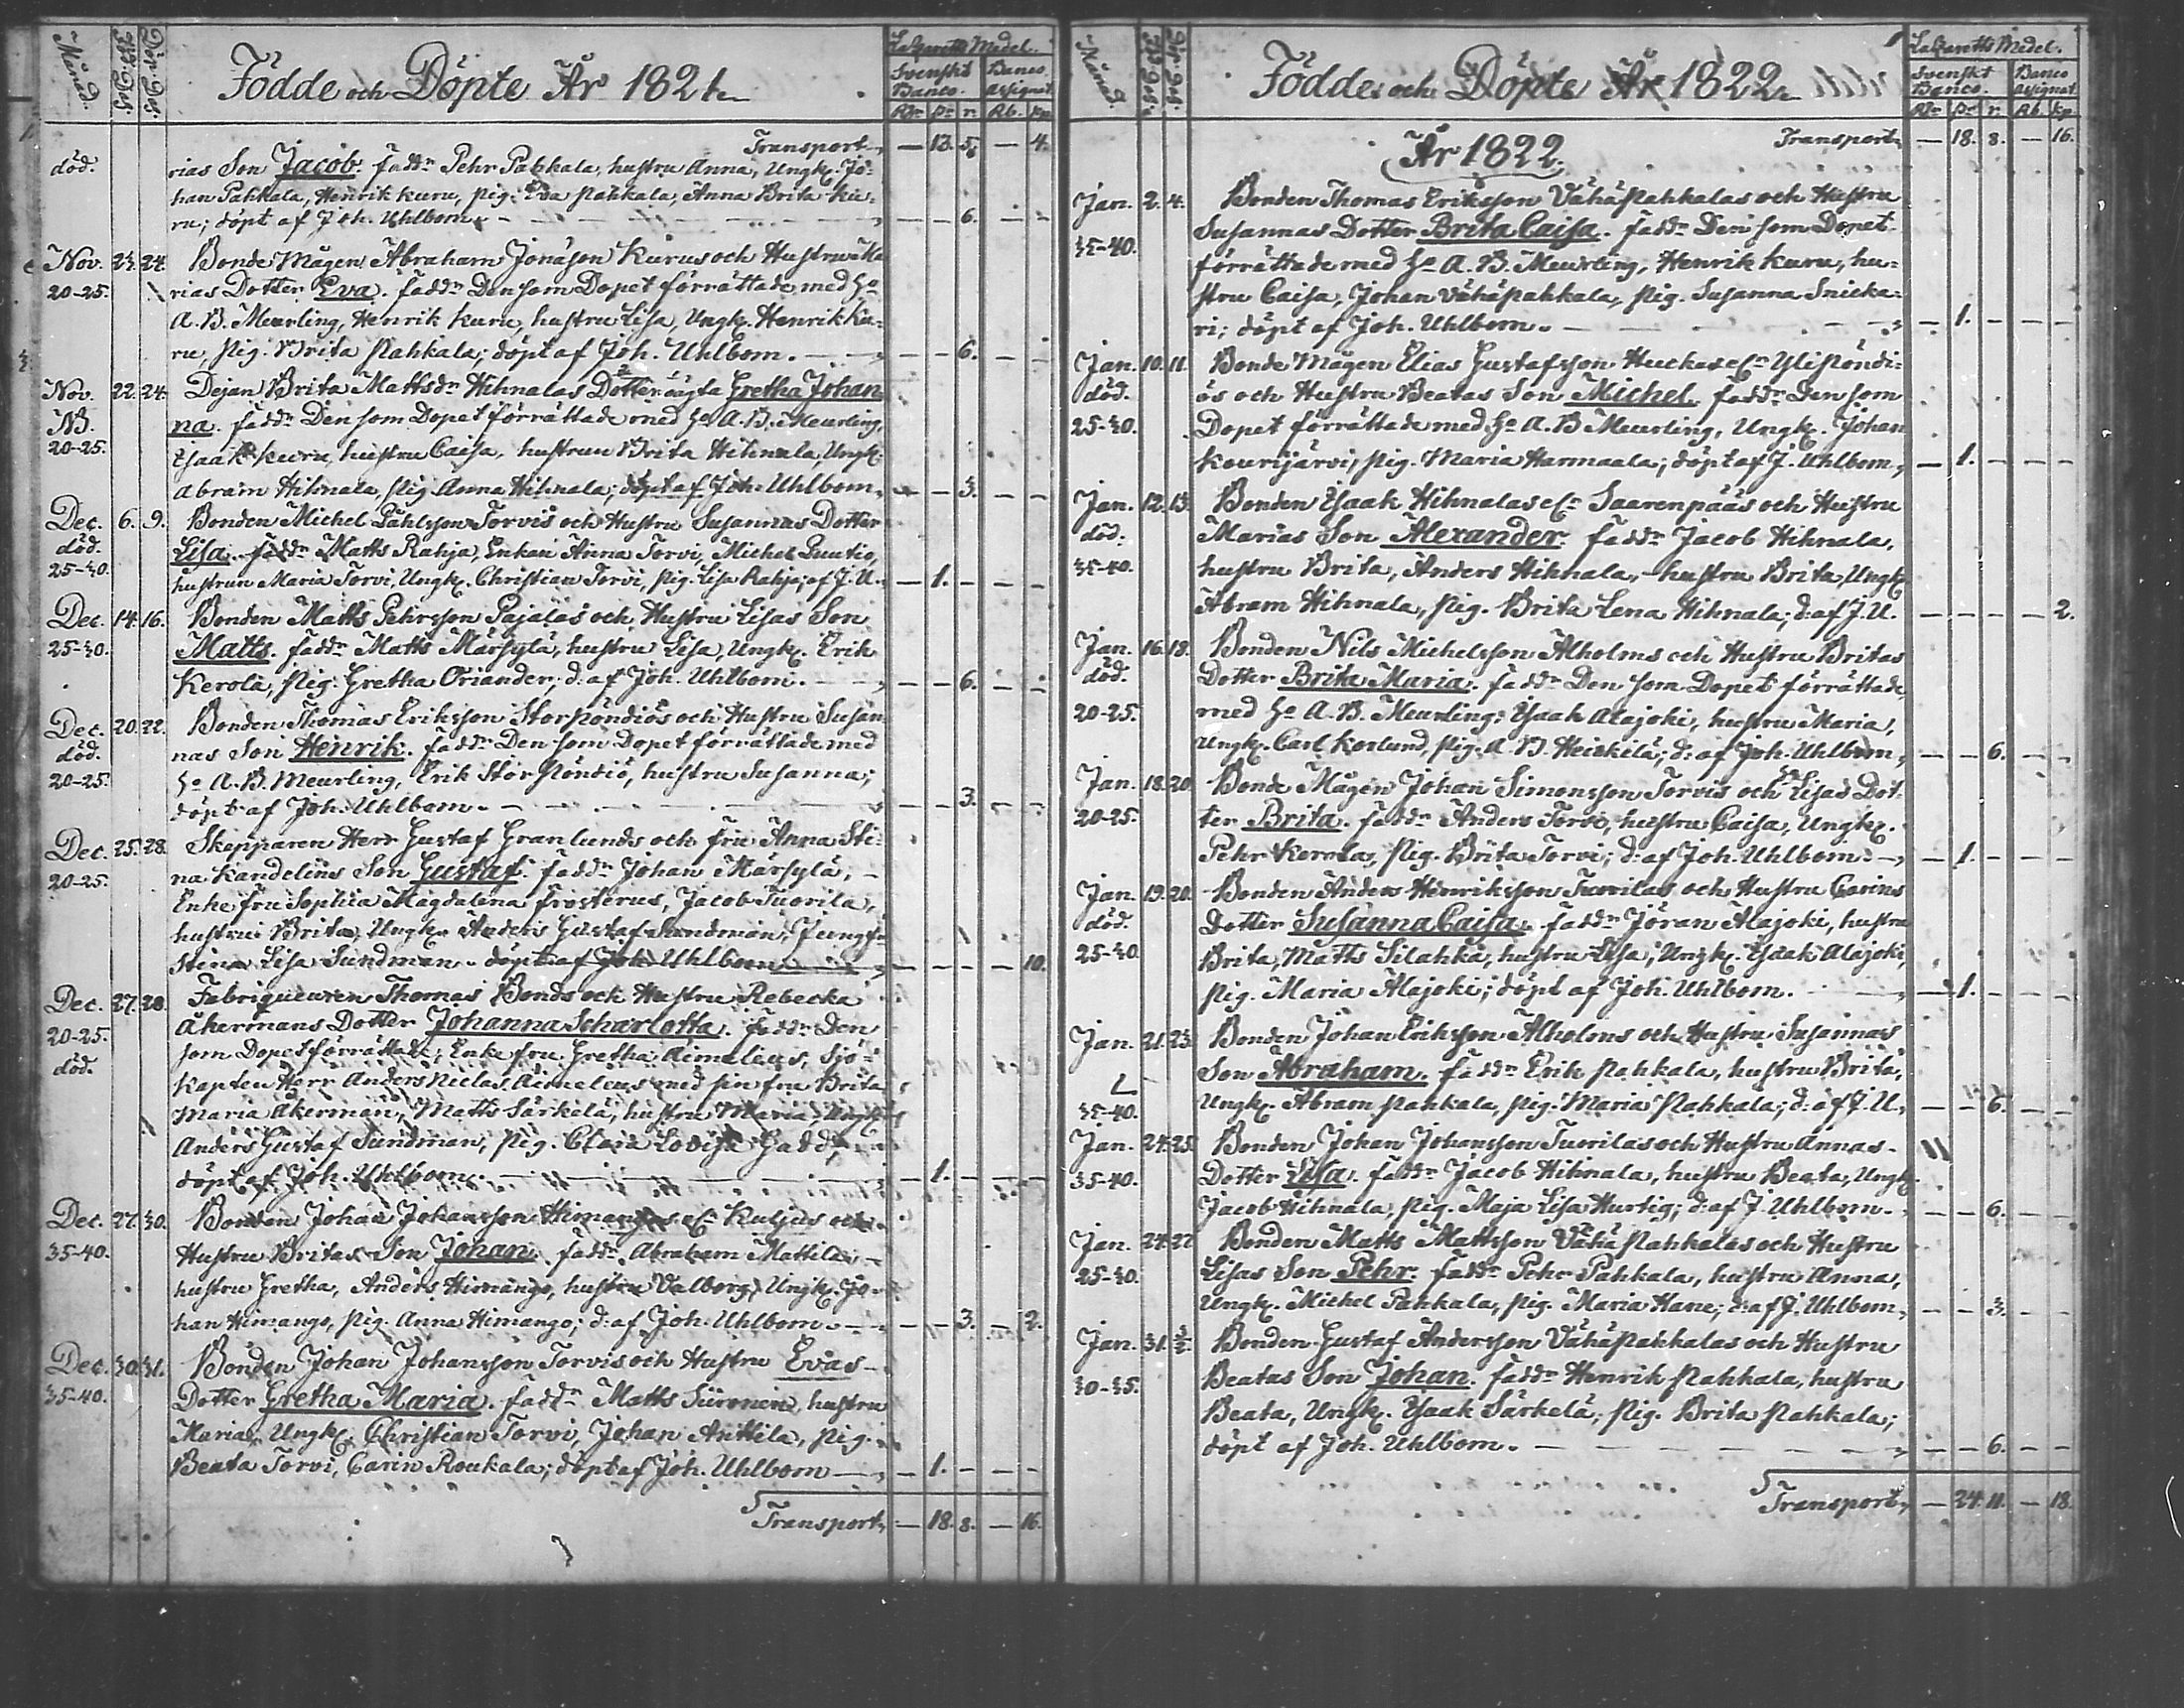 Månad.
Föd. Dag.
Döp. Dag.
Födde och Döpte År 1821.
Lazaretts Medel.
Svenskt Banco.
Banco assignat.
Transport — 13. 5. — 4.
död. rias Son Jacob. fadd:r Pehr Pahkala, hustru Anna, Ungk. Jo-
han Pahkala, Henrik Kuru, pig. Eva Pahkala, Anna Brita Ku-
ru; döpt af Joh. Uhlbom. — — 6. — —
Nov. 23. 24. Bonde Mågen Abraham Jonasson Kurus och Hustru Ma-
20-25. rias Dotter Eva. fadd:r Den som Dopet förrättade med H:o
A. B. Meurling, Henrik Kuru, hustru Lisa, Ungk. Henrik Ku-
ru, pig. Brita Pahkala; döpt af Joh. Uhlbom. — — 6. — —
Nov. 22. 24. Dejan Brita Mattsd:r Hihnalas Dotter oägta Gretha Johan
NB. na. fadd:r Den som Dopet förrättade med H:o A. B. Meurling,
20-25. Isaak Kuru, hustru Caisa, hustrun Brita Hihnala, Ungk.
Abram Hihnala, pig. Anna Hihnala; döpt af Joh. Uhlbom. — — 3. — —
Dec. 6. 9. Bonden Michel Påhlsson Torvis och Hustru Susannas Dotter
död. Lisa. fadd:r Matts Rahja, Enkan Anna Torvi, Michel Puutio,
25-40. hustrun Maria Torvi, Ungk. Christian Torvi, pig. Lisa Rahja; af J. U. — 1. — — —
Dec. 14. 16. Bonden Matts Pehrsson Pajalas och Hustru Lisas Son
25-30. Matts. fadd:r Matts Märsylä, hustru Lisa, Ungk. Erik
Kerola, pig. Gretha Oriander; d: af Joh. Uhlbom. — — 6. — —
Dec. 20. 22. Bonden Thomas Eriksson Storpöndiös och Hustru Susan
död. nas Son Henrik. fadd:r Den som Dopet förrättade med
20-25. H:o A. B. Meurling, Erik Storpöndiö, hustru Susanna;
döpt af Joh. Uhlbom. — — 3. — —
Dec. 25. 28. Skepparen Herr Gustaf Granlunds och fru Anna Sti-
20-25. na Kandelins Son Gustaf. fadd:r Johan Märsylä,
Enke fru Sophia Magdalena Frosterus, Jacob Tuorila,
hustru Brita, Ungk. Anders Gustaf Sundman, Jungf:r
Stina Lisa Sundman. döpt af Joh. Uhlbom — — — — 10.
Dec. 27. 28. Fabriqueuren Thomas Bonds och Hustru Rebecka
20-25. Åkermans Dotter Johanna Scharlotta. fadd:r Den
död. som Dopet förrättade; Enke fru Gretha Aimelæus, Sjö-
Kapten Herr Anders Niclas Aimelæus med sin fru Brita
Maria Åkerman, Matts Särkelä, hustru Maria, Ungk.
Anders Gustaf Sundman, pig. Clara Lovisa Gadd;
döpt af Joh. Uhlbom. — 1. — — —
Dec. 27. 30. Bonden Johan Johansson Himangos el:r Kuljus och
35-40. Hustru Britas Son Johan. fadd:r Abraham Mattila,
hustru Gretha, Anders Himango, hustru Valborg, Ungk. Jo-
han Himango, pig. Anna Himango; d: af Joh. Uhlbom. — — 3. — 2.
Dec. 30. 31. Bonden Johan Johansson Torvis och Hustru Evas
35-40. Dotter Gretha Maria. fadd:r Matts Siironen, hustru
Maria, Ungk. Christian Torvi, Johan Anttila, pig.
Beata Torvi, Carin Roukala; döpt af Joh. Uhlbom — 1. — — —
Transport, — 18. 8. — 16.
Månad.
Föd. Dag.
Döp. Dag.
Födde och Döpte År 1822
Lazaretts Medel.
Svenskt Banco.
Banco assignat.
År 1822. Transport, — 18. 8. — 16.
Jan. 2. 4. Bonden Thomas Eriksson Vähäpahkalas och Hustru
35-40. Susannas Dotter Brita Caisa. fadd:r Den som Dopet
förrättade med H:o A. B. Meurling, Henrik Kuru, hu-
stru Caisa, Johan Vähäpahkala, pig. Susanna Snicka-
ri; döpt af Joh. Uhlbom. — 1. — — —
Jan. 10. 11. Bonde Mågen Elias Gustafsson Huckas el:r Ylipöndi-
död. ös och Hustru Beatas Son Michel. fadd:r Den som
25-30. Dopet förrättade med H:o A. B. Meurling, Ungk. Johan
Kourijärvi, pig. Maria Harmaala; döpt af J. Uhlbom, — 1. — — —
Jan. 12. 13. Bonden Isaak Hihnalas el:r Saarenpääs och Hustru
död. Marias Son Alexander. fadd:r Jacob Hihnala,
35-40. hustru Brita, Anders Hihnala, hustru Brita, Ungk.
Abram Hihnala, pig. Brita Lena Hihnala; d: af J. U. — — — — 2.
Jan. 16. 18. Bonden Nils Michelsson Alholms och Hustru Britas
död. Dotter Brita Maria. fadd:r Den som Dopet förrättade,
20-25. med H:o A. B. Meurling; Isaak Alajoki, hustru Maria,
Ungk. Carl Korlund, pig. A. B. Heickilä; d: af Joh. Uhlbom, — — 6. — —
Jan. 18. 20. Bonde Mågen Johan Simonsson Torvis och Lisas Dot-
20-25. ter Brita. fadd:r Anders Torvi, hustru Caisa, Ungk.
Pehr Kerola, pig. Brita Torvi; d: af Joh. Uhlbom. — 1. — — —
Jan. 19. 20. Bonden Anders Henriksson Tuorilas och Hustru Carins
död. Dotter Susanna Caisa. fadd:r Jöran Alajoki, hustru
25-30. Brita, Matts Silahka, hustru Lisa, Ungk. Isaak Alajoki,
pig. Maria Alajoki; döpt af Joh. Uhlbom. — 1. — — —
Jan. 21. 23. Bonden Johan Eriksson Alholms och Hustru Susannas
Son Abraham. fadd:r Erik Pahkala, hustru Brita,
35-40. Ungk. Abram Pahkala, pig. Maria Pahkala; d: af J. U. — — 6. — —
Jan. 24. 25. Bonden Johan Johansson Tuorilas och Hustru Annas
35-40. Dotter Lisa. fadd:r Jacob Hihnala, hustru Beata, Ungk.
Jacob Hihnala, pig. Maja Lisa Hurtig; d: af J. Uhlbom. — — 6. — —
Jan. 24. 27. Bonden Matts Mattsson Vähäpahkalas och Hustru
25-30. Lisas Son Pehr. fadd:r Pehr Pahkala, hustru Anna,
Ungk. Michel Pahkala, pig. Maria Hane; d: af J. Uhlbom, — — 3. — —
Jan. 31. 3/2 Bonden Gustaf Andersson Vähäpahkalas och Hustru
30-35. Beatas Son Johan. fadd:r Henrik Pahkala, hustru
Beata, Ungk. Isaak Särkelä, pig. Brita Pahkala;
döpt af Joh. Uhlbom. — — 6. — —
Transport, — 24. 11. — 18.